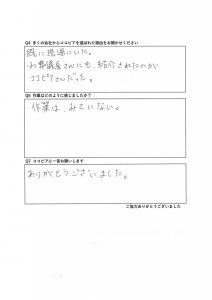 Q4 多くの会社からココピアを選ばれた理由をお聞かせください
既に現場にいた。
・お葬儀屋さんにも、紹介されたのが
ココピアさんだった。
Q6 作業はどのように感じましたか?
・作業は、みていない。
Q7 ココピアに一言お願いします
ありがとうございました。
ご協力ありがとうございました